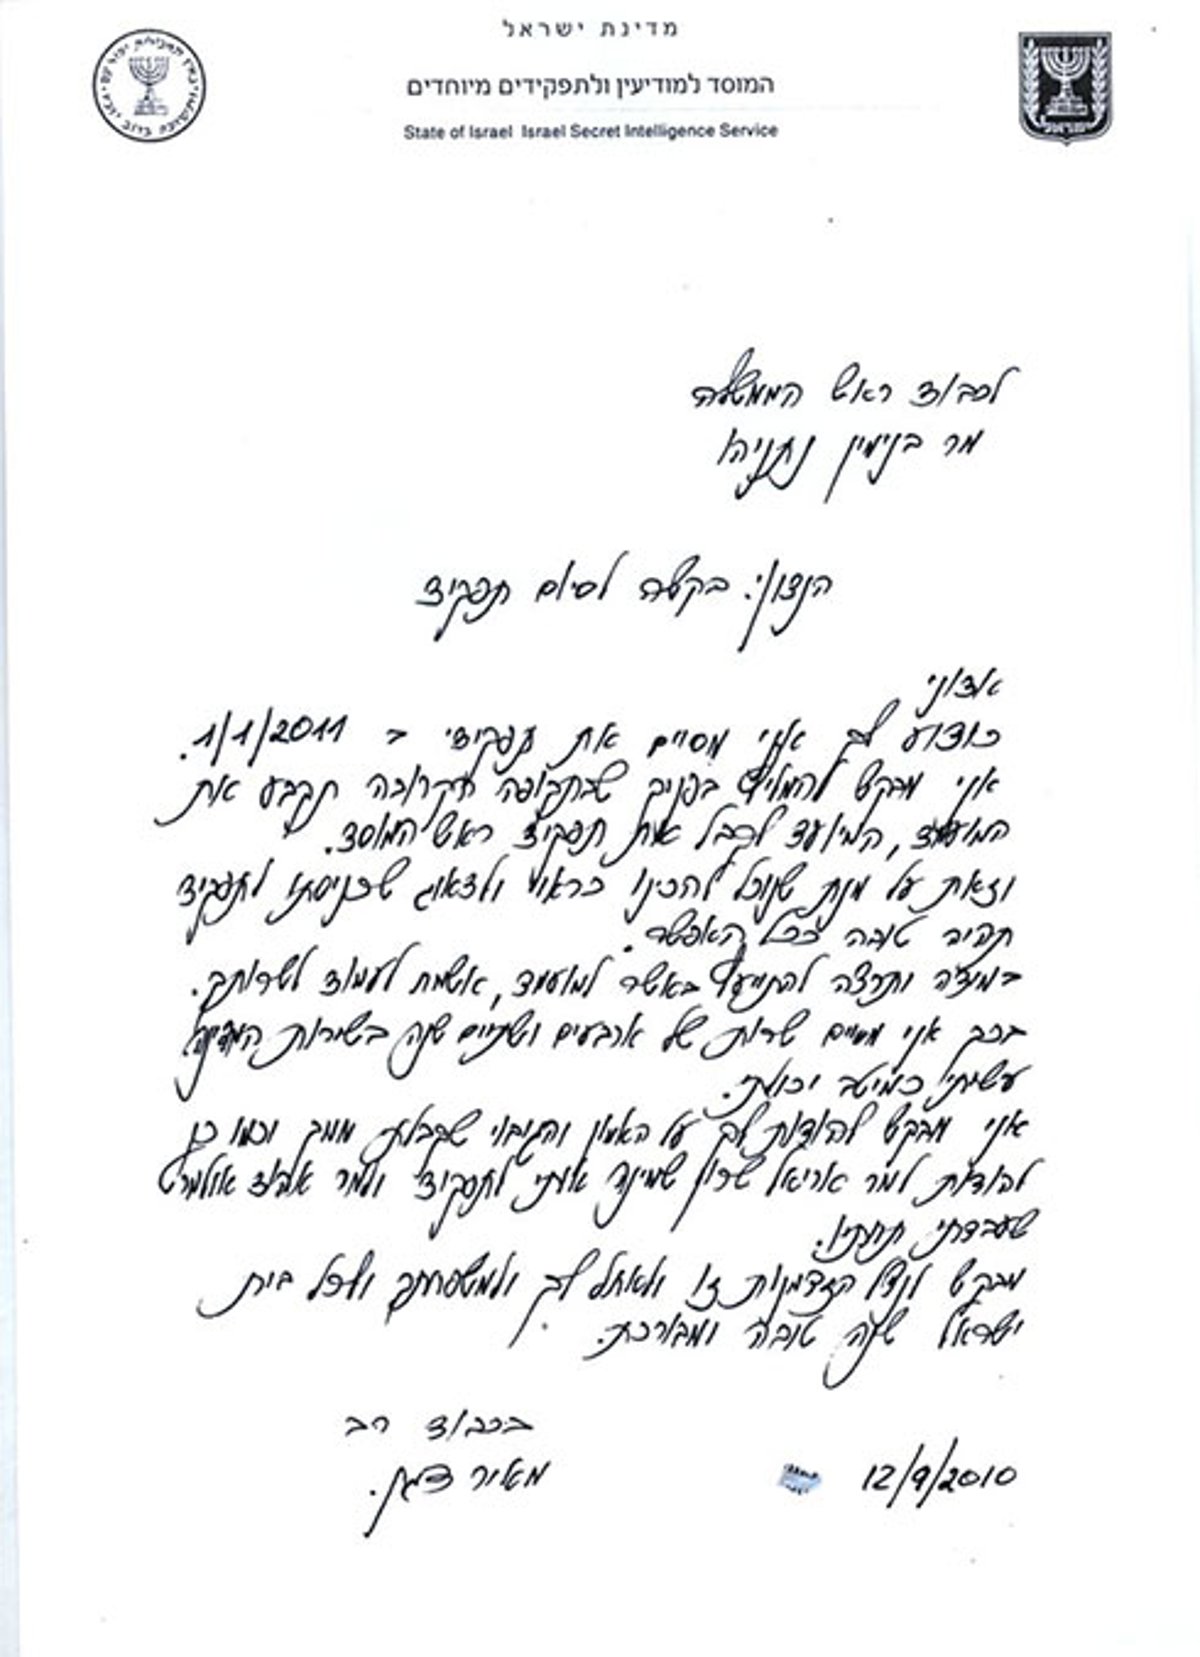 מדינת ישראל
המוסד למודיעין ולתפקידים מיוחדים
State of Israel Israel Secret Intelligence Service
לכבוד ראש הממשלה
מר בנימין נתניהו
הנדון: בקשה לסיום תפקיד
אדוני
כידוע לך אני מסיים את תפקידי ב 1/1/2011.
אני מבקש להמליץ בפניך שבתקופה הקרובה תקבע את
המועמד, המיועד לקבל את תפקיד ראש המוסד.
וזאת על מנת שנוכל להכינו כראוי ולדאוג שכניסתו לתפקיד
תהיה טובה ככל האפשר.
במידה ותרצה להתייעץ באשר למועמד, אשמח לעמוד לשרותך.
בכך אני מסיים שרות של ארבעים ושתיים שנה בשירות המדינה
עשיתי כמיטב יכולתי.
אני מבקש להודות לך על האמון והגיבוי שקבלתי ממך וכמו כן
להודות למר אריאל שרון שמינה אותי לתפקידי ולמר אהוד אולמרט
שעבדתי תחתיו.
מבקש לנצל הזדמנות זו ולאחל לך ולמשפחתך ולכל בית
ישראל שנה טובה ומבורכת.
בכבוד רב
מאיר דגן.
12/9/2010